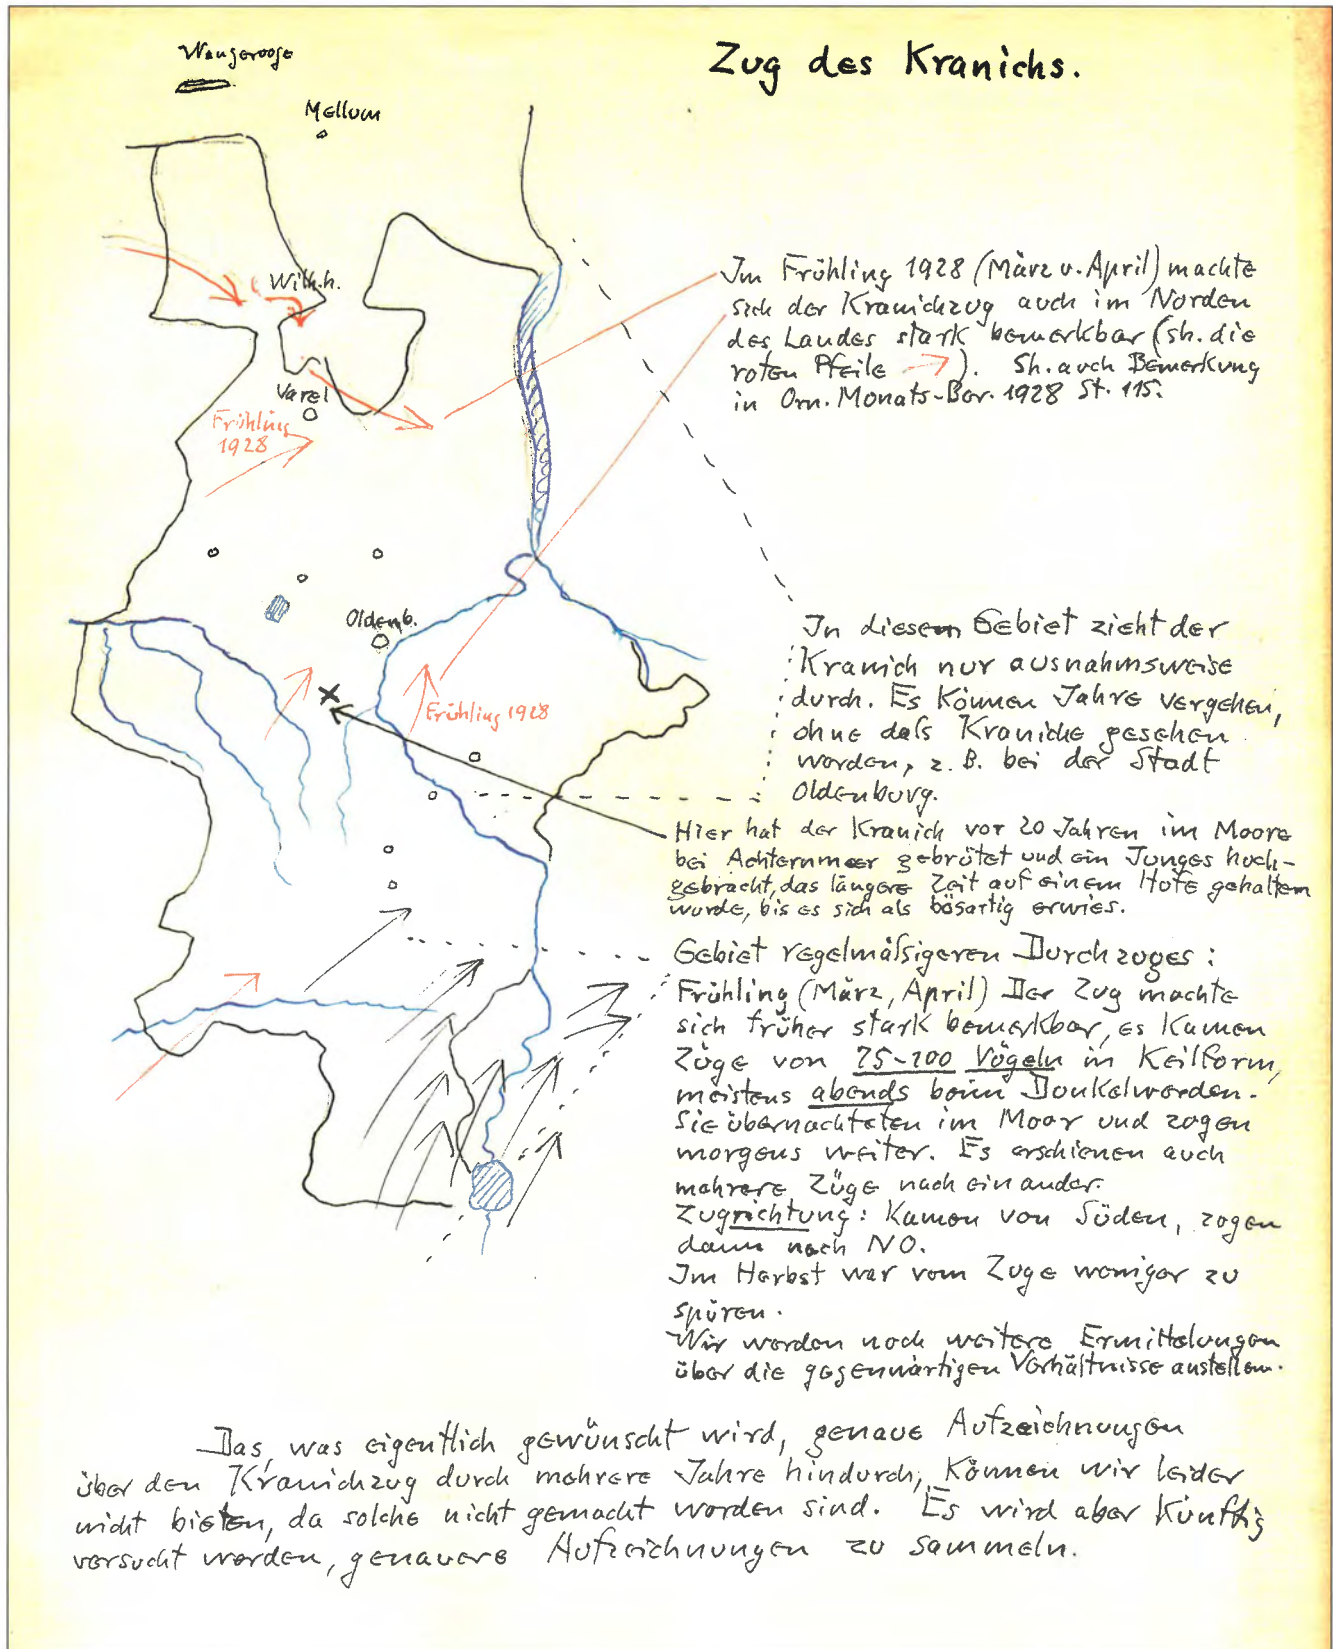 Wangerooge
Zug des Kranichs.
Mellum
Wilh.h.
Varel
Frühling
1928
Im Frühling 1928 (März u. April) machte
sich der Kranichzug auch im Norden
des Landes stark bemerkbar (sh. die
roten Pfeile →). Sh. auch Bemerkung
in Orn. Monats-Ber. 1928 St. 115.
Oldenb.
Frühling 1928
In diesem Gebiet zieht der
Kranich nur ausnahmsweise
durch. Es können Jahre vergehen,
ohne dass Kraniche gesehen
werden, z. B. bei der Stadt
Oldenburg.
Hier hat der Kranich vor 20 Jahren im Moore
bei Achternmeer gebrütet und ein Junges hoch-
gebracht, das längere Zeit auf einem Hofe gehalten
wurde, bis es sich als bösartig erwies.
Gebiet regelmäßigeren Durchzuges:
Frühling (März, April) Der Zug machte
sich früher stark bemerkbar, es kamen
Züge von 75-100 Vögeln in Keilform,
meistens abends beim Dunkelwerden.
Sie übernachteten im Moor und zogen
morgens weiter. Es erschienen auch
mehrere Züge nach einander.
Zugrichtung: Kamen von Süden, zogen
dann nach NO.
Im Herbst war vom Zuge weniger zu
spüren.
Wir werden noch weitere Ermittelungen
über die gegenwärtigen Verhältnisse anstellen.
Das, was eigentlich gewünscht wird, genaue Aufzeichnungen
über den Kranichzug durch mehrere Jahre hindurch, können wir leider
nicht bieten, da solche nicht gemacht worden sind. Es wird aber künftig
versucht werden, genauere Aufzeichnungen zu sammeln.